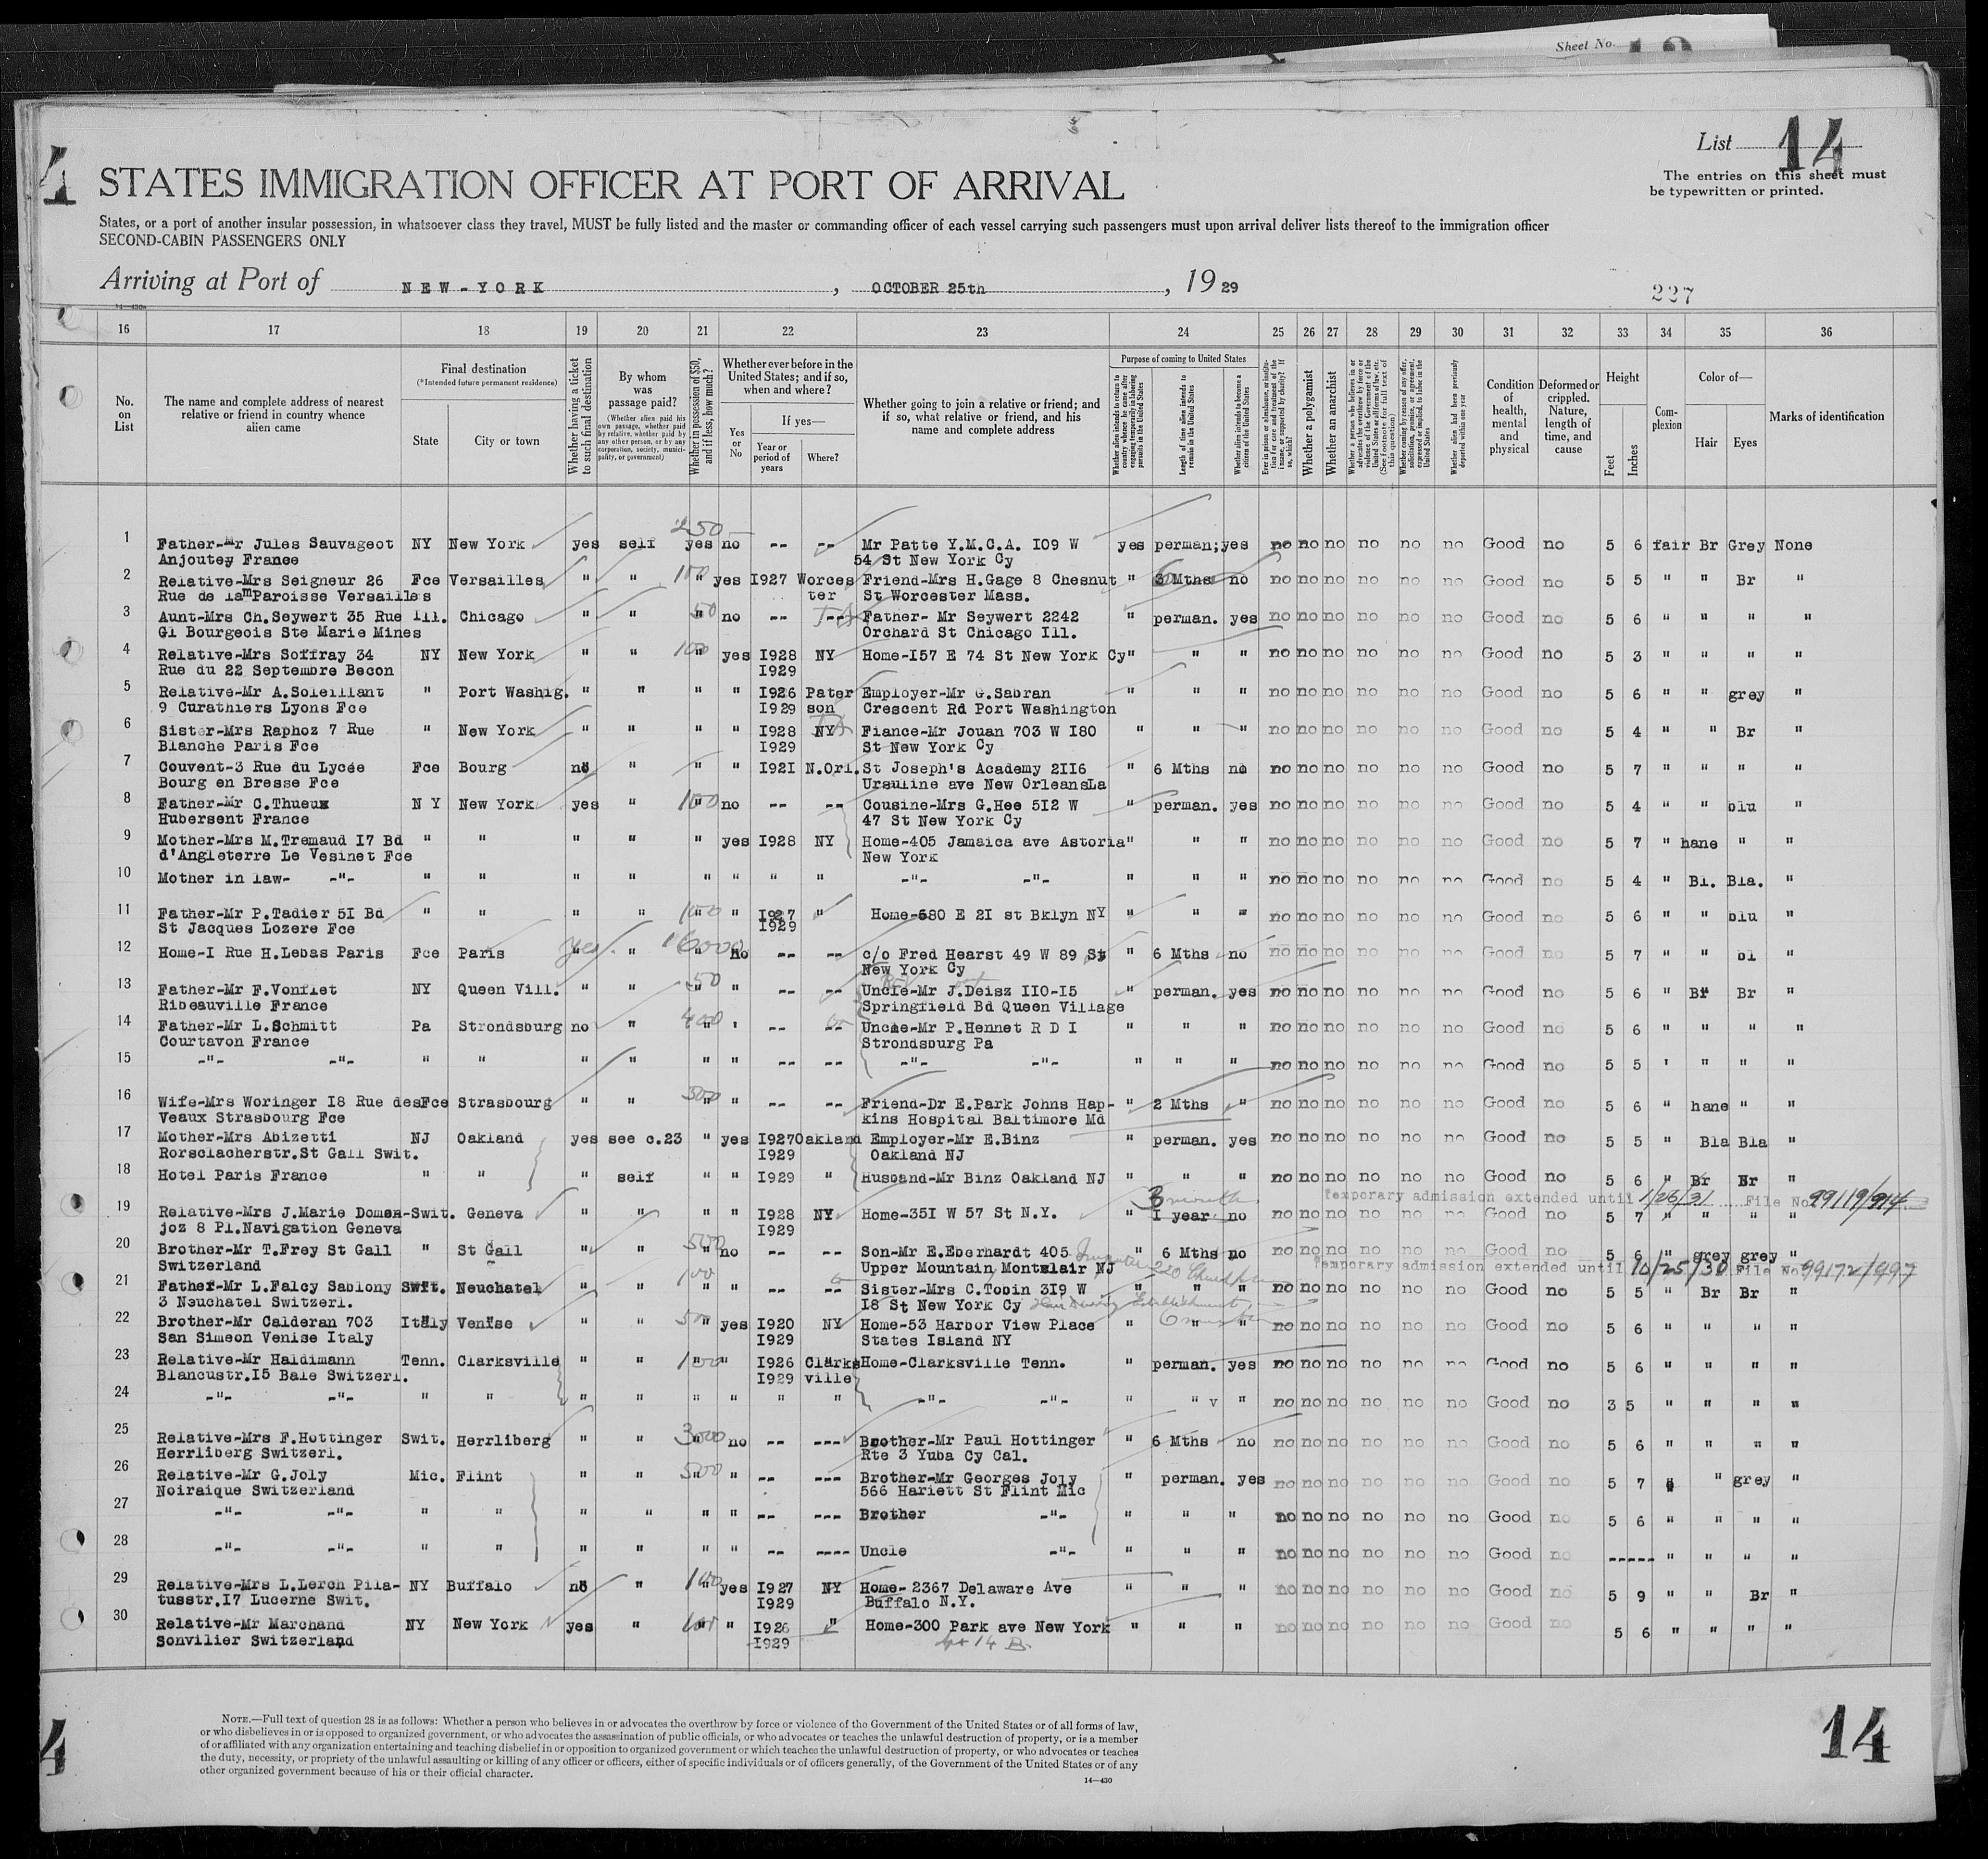 Sheet No.
List 14
The entries on this sheet must
be typewritten or printed.
4 STATES IMMIGRATION OFFICER AT PORT OF ARRIVAL
States, or a port of another insular possession, in whatsoever class they travel, MUST be fully listed and the master or commanding officer of each vessel carrying such passengers must upon arrival deliver lists thereof to the immigration officer
SECOND-CABIN PASSENGERS ONLY
Arriving at Port of NEW-YORK, OCTOBER 25th, 19 29
227
14—430
16 17 18 19 20 21 22 23 24 25 26 27 28 29 30 31 32 33 34 35 36
No. on List
The name and complete address of nearest relative or friend in country whence alien came
Final destination
(*Intended future permanent residence)
State
City or town
Whether having a ticket to such final destination
By whom was passage paid?
(Whether alien paid his own passage, whether paid by relative, whether paid by any other person, or by any corporation, society, municipality, or government)
Whether in possession of $50, and if less, how much?
Whether ever before in the United States; and if so, when and where?
Yes or No
If yes—
Year or period of years
Where?
Whether going to join a relative or friend; and if so, what relative or friend, and his name and complete address
Purpose of coming to United States
Whether alien intends to return to country whence he came after engaging temporarily in laboring pursuits in the United States
Length of time alien intends to remain in the United States
Whether alien intends to become a citizen of the United States
Ever in prison or almshouse, or institution for care and treatment of the insane, or supported by charity? If so, which?
Whether a polygamist
Whether an anarchist
Whether a person who believes in or advocates the overthrow by force or violence of the Government of the United States or all forms of law, etc. (See footnote for full text of this question)
Whether coming by reason of any offer, solicitation, promise, or agreement, expressed or implied, to labor in the United States
Whether alien had been previously deported within one year
Condition of health, mental and physical
Deformed or crippled. Nature, length of time, and cause
Height
Feet
Inches
Complexion
Color of—
Hair
Eyes
Marks of identification
1 Father-Mr Jules Sauvageot NY New York yes self 250 yes no -- -- Mr Patte Y.M.C.A. I09 W yes perman; yes no no no no no no Good no 5 6 fair Br Grey None
Anjoutey France 54 St New York Cy
2 Relative-Mrs Seigneur 26 Fce Versailles " " 100 " yes I927 Worces Friend-Mrs H.Gage 8 Chesnut " 3 Mths no no no no no no no Good no 5 5 " " Br "
Rue de la Paroisse Versailles ter St Worcester Mass.
3 Aunt-Mrs Ch.Seywert 35 Rue Ill. Chicago " " 50 " no -- -- Father- Mr Seywert 2242 " perman. yes no no no no no no Good no 5 6 " " " "
Gl Bourgeois Ste Marie Mines Orchard St Chicago Ill.
4 Relative-Mrs Soffray 34 NY New York " " 100 " yes I928 NY Home-I57 E 74 St New York Cy " " " no no no no no no Good no 5 3 " " " "
Rue du 22 Septembre Becon I929
5 Relative-Mr A.Soleillant " Port Washig. " " " " I926 Pater Employer-Mr G.Sabran " " " no no no no no no Good no 5 6 " " grey "
9 Curathiers Lyons Fce I929 son Crescent Rd Port Washington
6 Sister-Mrs Raphoz 7 Rue " New York " " " " I928 NY Fiance-Mr Jouan 703 W I80 " " " no no no no no no Good no 5 4 " " Br "
Blanche Paris Fce I929 St New York Cy
7 Couvent-3 Rue du Lycée Fce Bourg no " " " I92I N.Orl. St Joseph's Academy 2II6 " 6 Mths no no no no no no no Good no 5 7 " " " "
Bourg en Bresse Fce Ursuline ave New OrleansLa
8 Father-Mr C.Thueux N Y New York yes " 100 " no -- -- Cousine-Mrs G.Hee 5I2 W " perman. yes no no no no no no Good no 5 4 " " blu "
Hubersent France 47 St New York Cy
9 Mother-Mrs M.Tremaud I7 Bd " " " " " yes I928 NY Home-405 Jamaica ave Astoria " " " no no no no no no Good no 5 7 " hane " "
d'Angleterre Le Vesinet Fce New York
10 Mother in law- -"- " " " " " " " " -"- -"- " " " no no no no no no Good no 5 4 " Bl. Bla. "
11 Father-Mr P.Tadier 5I Bd " " " " 100 " " I927 " Home-680 E 2I st Bklyn NY " " " no no no no no no Good no 5 6 " " blu "
St Jacques Lozere Fce I929
12 Home-I Rue H.Lebas Paris Fce Paris yes " " 16000 " no -- -- c/o Fred Hearst 49 W 89 St " 6 Mths no no no no no no no Good no 5 7 " " bl "
New York Cy
13 Father-Mr F.Vonflet NY Queen Vill. " " 50 " " -- -- Uncle-Mr J.Deisz II0-I5 " perman. yes no no no no no no Good no 5 6 " Br Br "
Ribeauville France Springfield Bd Queen Village
14 Father-Mr L.Schmitt Pa Strondsburg no " 400 " ' -- -- Uncle-Mr P.Hennet R D I " " " no no no no no no Good no 5 6 " " " "
Courtavon France Strondsburg Pa
15 -"- -"- " " " " " " -- -- -"- -"- " " " no no no no no no Good no 5 5 ' " " "
16 Wife-Mrs Woringer I8 Rue des Fce Strasbourg " " 300 " " -- -- Friend-Dr E.Park Johns Hap- " 2 Mths " no no no no no no Good no 5 6 " hane " "
Veaux Strasbourg Fce kins Hospital Baltimore Md
17 Mother-Mrs Abizetti NJ Oakland yes see c.23 " yes I927 Oakland Employer-Mr E.Binz " perman. yes no no no no no no Good no 5 5 " Bla Bla "
Rorsclacherstr.St Gall Swit. I929 Oakland NJ
18 Hotel Paris France " " " self " " I929 " Husband-Mr Binz Oakland NJ " " " no no no no no no Good no 5 6 " Br Br "
3 months Temporary admission extended until 1/26/31 File No 99119/914
19 Relative-Mrs J.Marie Domen- Swit. Geneva " " " " I928 NY Home-35I W 57 St N.Y. " I year no no no no no no no Good no 5 7 " " " "
joz 8 Pl.Navigation Geneva I929
20 Brother-Mr T.Frey St Gall " St Gall " " 500 " no -- -- Son-Mr E.Eberhardt 405 " 6 Mths no no no no no no no Good no 5 6 " grey grey "
Switzerland Upper Mountain Montclair NJ Temporary admission extended until 10/25/30 File No 99172/997
21 Father-Mr L.Falcy Sablony Swit. Neuchatel " " 100 " " -- -- Sister-Mrs C.Tobin 3I9 W " " " no no no no no no Good no 5 5 " Br Br "
3 Neuchatel Switzerl. I8 St New York Cy
22 Brother-Mr Calderan 703 Italy Venise " " 500 " yes I920 NY Home-53 Harbor View Place " " " no no no no no no Good no 5 6 " " " "
San Simeon Venise Italy I929 States Island NY
23 Relative-Mr Haldimann Tenn. Clarksville " " 100 " " I926 Clarks Home-Clarksville Tenn. " perman. yes no no no no no no Good no 5 6 " " " "
Blancustr.I5 Bale Switzerl. I929 ville
24 -"- -"- " " " " " " " " -"- -"- " " v " no no no no no no Good no 3 5 " " " "
25 Relative-Mrs F.Hottinger Swit. Herrliberg " " 3000 " no -- --- Brother-Mr Paul Hottinger " 6 Mths no no no no no no no Good no 5 6 " " " "
Herrliberg Switzerl. Rte 3 Yuba Cy Cal.
26 Relative-Mr G.Joly Mic. Flint " " 500 " " -- --- Brother-Mr Georges Joly " perman. yes no no no no no no Good no 5 7 " " grey "
Noiraique Switzerland 566 Hariett St Flint Mic
27 -"- -"- " " " " " " -- --- Brother -"- " " " no no no no no no Good no 5 6 " " " "
28 -"- -"- " " " " " " -- ---- Uncle -"- " " " no no no no no no Good no ----- " " " "
29 Relative-Mrs L.Lerch Pila- NY Buffalo no " 100 " yes I927 NY Home- 2367 Delaware Ave " " " no no no no no no Good no 5 9 " " Br "
tusstr.I7 Lucerne Swit. I929 Buffalo N.Y.
30 Relative-Mr Marchand NY New York yes " 100 " " I926 " Home-300 Park ave New York " " " no no no no no no Good no 5 6 " " " "
Sonvilier Switzerland I929
NOTE.—Full text of question 28 is as follows: Whether a person who believes in or advocates the overthrow by force or violence of the Government of the United States or of all forms of law,
or who disbelieves in or is opposed to organized government, or who advocates the assassination of public officials, or who advocates or teaches the unlawful destruction of property, or is a member
of or affiliated with any organization entertaining and teaching disbelief in or opposition to organized government or which teaches the unlawful destruction of property, or who advocates or teaches
the duty, necessity, or propriety of the unlawful assaulting or killing of any officer or officers, either of specific individuals or of officers generally, of the Government of the United States or of any
other organized government because of his or their official character.
14—430
4
14